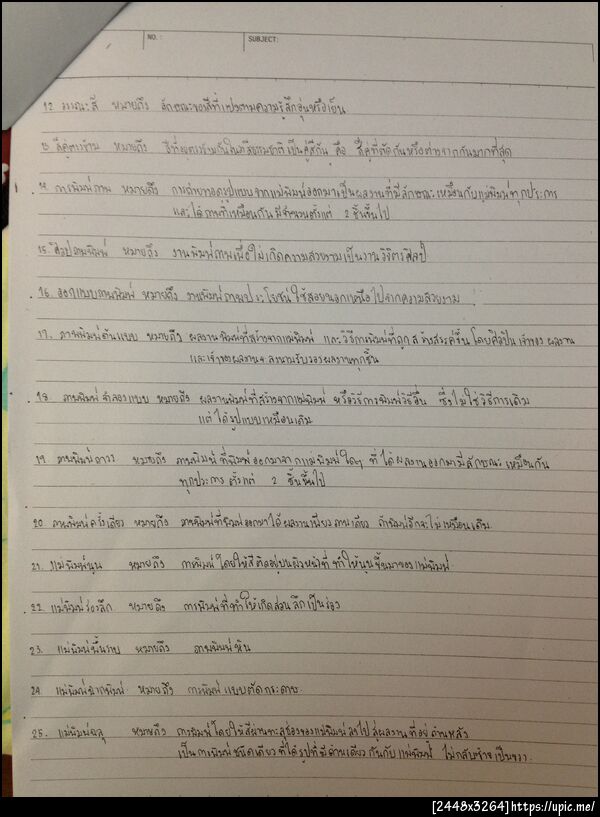 NO. :
SUBJECT:
12. วรรณะสี หมายถึง ลักษณะของสีที่แบ่งตามความรู้สึกอุ่นหรือเย็น
13. สีคู่ตรงข้าม หมายถึง สีที่อยู่ตรงข้ามกันในวงสีธรรมชาติเป็นคู่สีกัน คือ สีคู่ที่ตัดกันหรือต่างจากกันมากที่สุด
14. การพิมพ์ภาพ หมายถึง การถ่ายทอดรูปแบบจากแม่พิมพ์ออกมาเป็นผลงานที่มีลักษณะเหมือนกับแม่พิมพ์ทุกประการ
และได้ภาพที่เหมือนกันมีจำนวนตั้งแต่ 2 ชิ้นขึ้นไป
15. ศิลปภาพพิมพ์ หมายถึง งานพิมพ์ภาพเพื่อให้เกิดความสวยงามเป็นงานวิจิตรศิลป์
16. ออกแบบภาพพิมพ์ หมายถึง งานพิมพ์ภาพประโยชน์ใช้สอยนอกเหนือไปจากความสวยงาม
17. ภาพพิมพ์ต้นแบบ หมายถึง ผลงานพิมพ์ที่สร้างจากแม่พิมพ์ และวิธีการพิมพ์ที่ถูกสร้างสรรค์ขึ้นโดยศิลปินเจ้าของผลงาน
และเจ้าของผลงานจะลงนามรับรองผลงานทุกชิ้น
18. ภาพพิมพ์จำลองแบบ หมายถึง ผลงานพิมพ์ที่สร้างจากแม่พิมพ์ หรือวิธีการพิมพ์วิธีอื่น ซึ่งไม่ใช่วิธีการเดิม
แต่ได้รูปแบบเหมือนเดิม
19. ภาพพิมพ์ถาวร หมายถึง ภาพพิมพ์ที่พิมพ์ออกมาจากแม่พิมพ์ใดๆ ที่ได้ผลงานออกมามีลักษณะเหมือนกัน
ทุกประการ ตั้งแต่ 2 ชิ้นขึ้นไป
20. ภาพพิมพ์ครั้งเดียว หมายถึง ภาพพิมพ์ที่พิมพ์ออกมาได้ผลงานเพียงภาพเดียว ถ้าพิมพ์อีกจะไม่เหมือนเดิม
21. แม่พิมพ์นูน หมายถึง การพิมพ์โดยให้สีติดอยู่บนผิวหน้าที่ทำให้นูนขึ้นมาของแม่พิมพ์
22. แม่พิมพ์ร่องลึก หมายถึง การพิมพ์ที่ทำให้เกิดส่วนลึกเป็นร่อง
23. แม่พิมพ์พื้นราบ หมายถึง ภาพพิมพ์หิน
24. แม่พิมพ์ฉากพิมพ์ หมายถึง การพิมพ์แบบตัดกระดาษ
25. แม่พิมพ์ฉลุ หมายถึง การพิมพ์โดยให้สีผ่านทะลุช่องของแม่พิมพ์ลงไปสู่ผลงานที่อยู่ด้านหลัง
เป็นการพิมพ์ชนิดเดียวที่ได้รูปที่มีด้านเดียวกันกับแม่พิมพ์ ไม่กลับซ้ายเป็นขวา.
[2448x3264]https://upic.me/